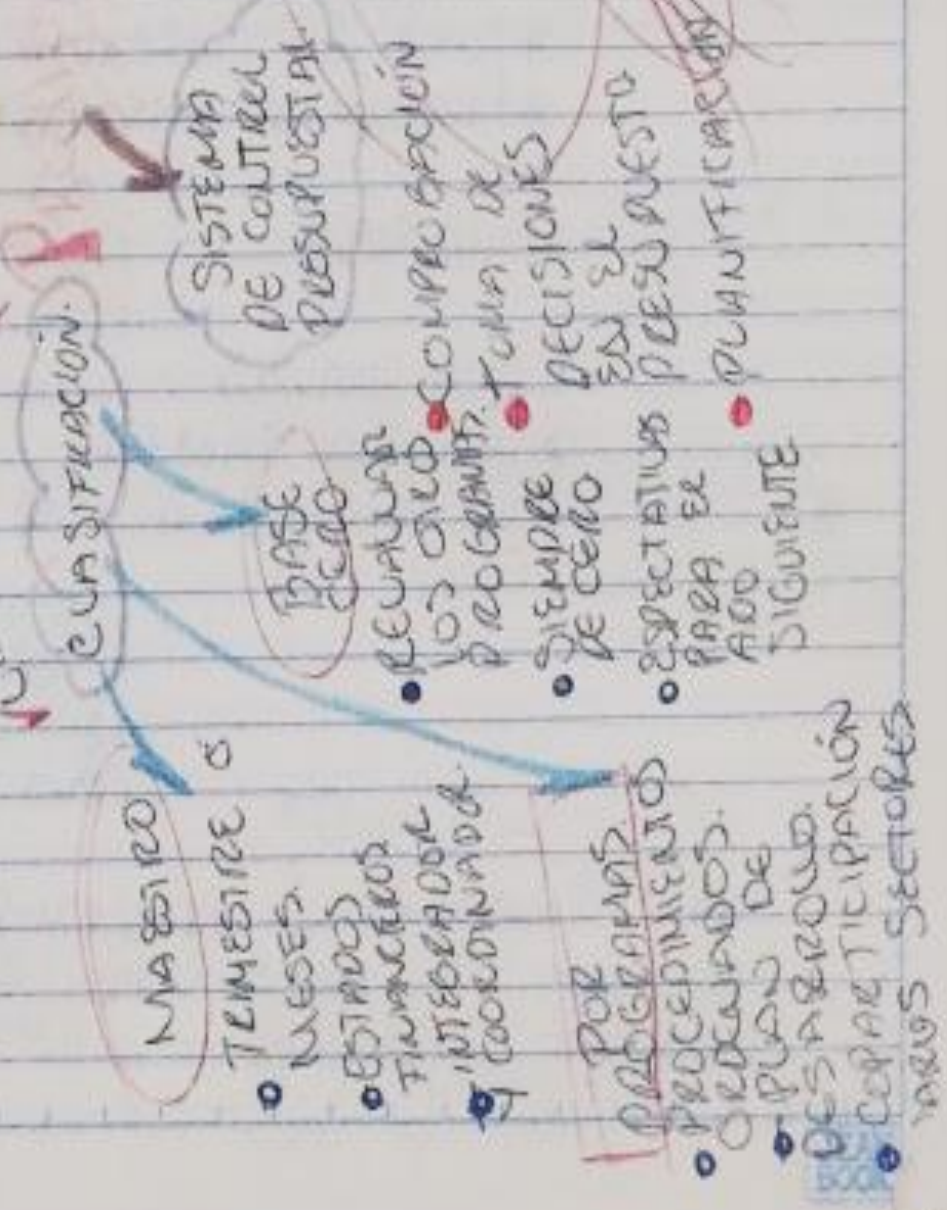 CLASIFICACIÓN.
MAESTRO
TRIMESTRE Ó
MESES.
ESTADOS
FINANCIEROS
INTEGRADOR
Y COORDINADOR.
POR
PROGRAMAS
PROCEDIMIENTOS
ORDENADOS.
PLAN DE
DESARROLLO.
COPARTICIPACIÓN
VARIOS SECTORES
BASE
CERO
REEVALUAR
LOS
PROGRAMAS.
SIEMPRE
DE CERO
ESPECTATIVAS
PARA EL
AÑO
SIGUIENTE
SISTEMA
DE CONTROL
PRESUPUESTAL
COMPROBACIÓN
TOMA DE
DECISIONES
EN EL
PRESUPUESTO
PLANIFICACIÓN
BOOK